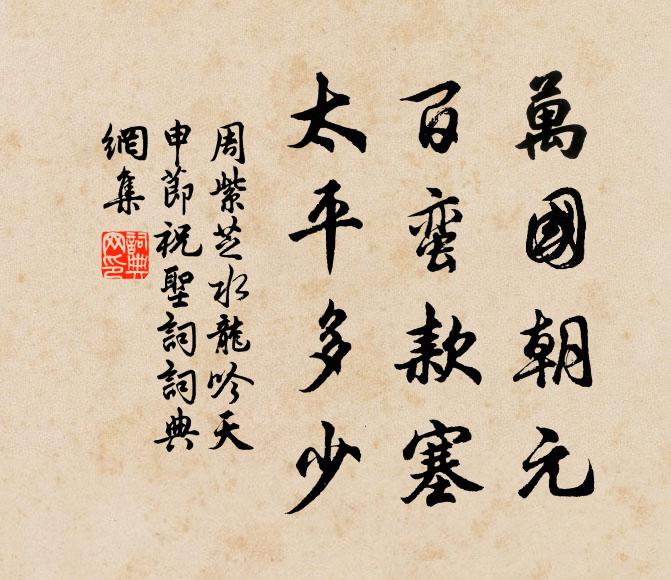 萬國朝元
百蛮款塞
太平多少
周紫芝水龍吟天
申節祝聖詞詞典
網集
詞典
网印